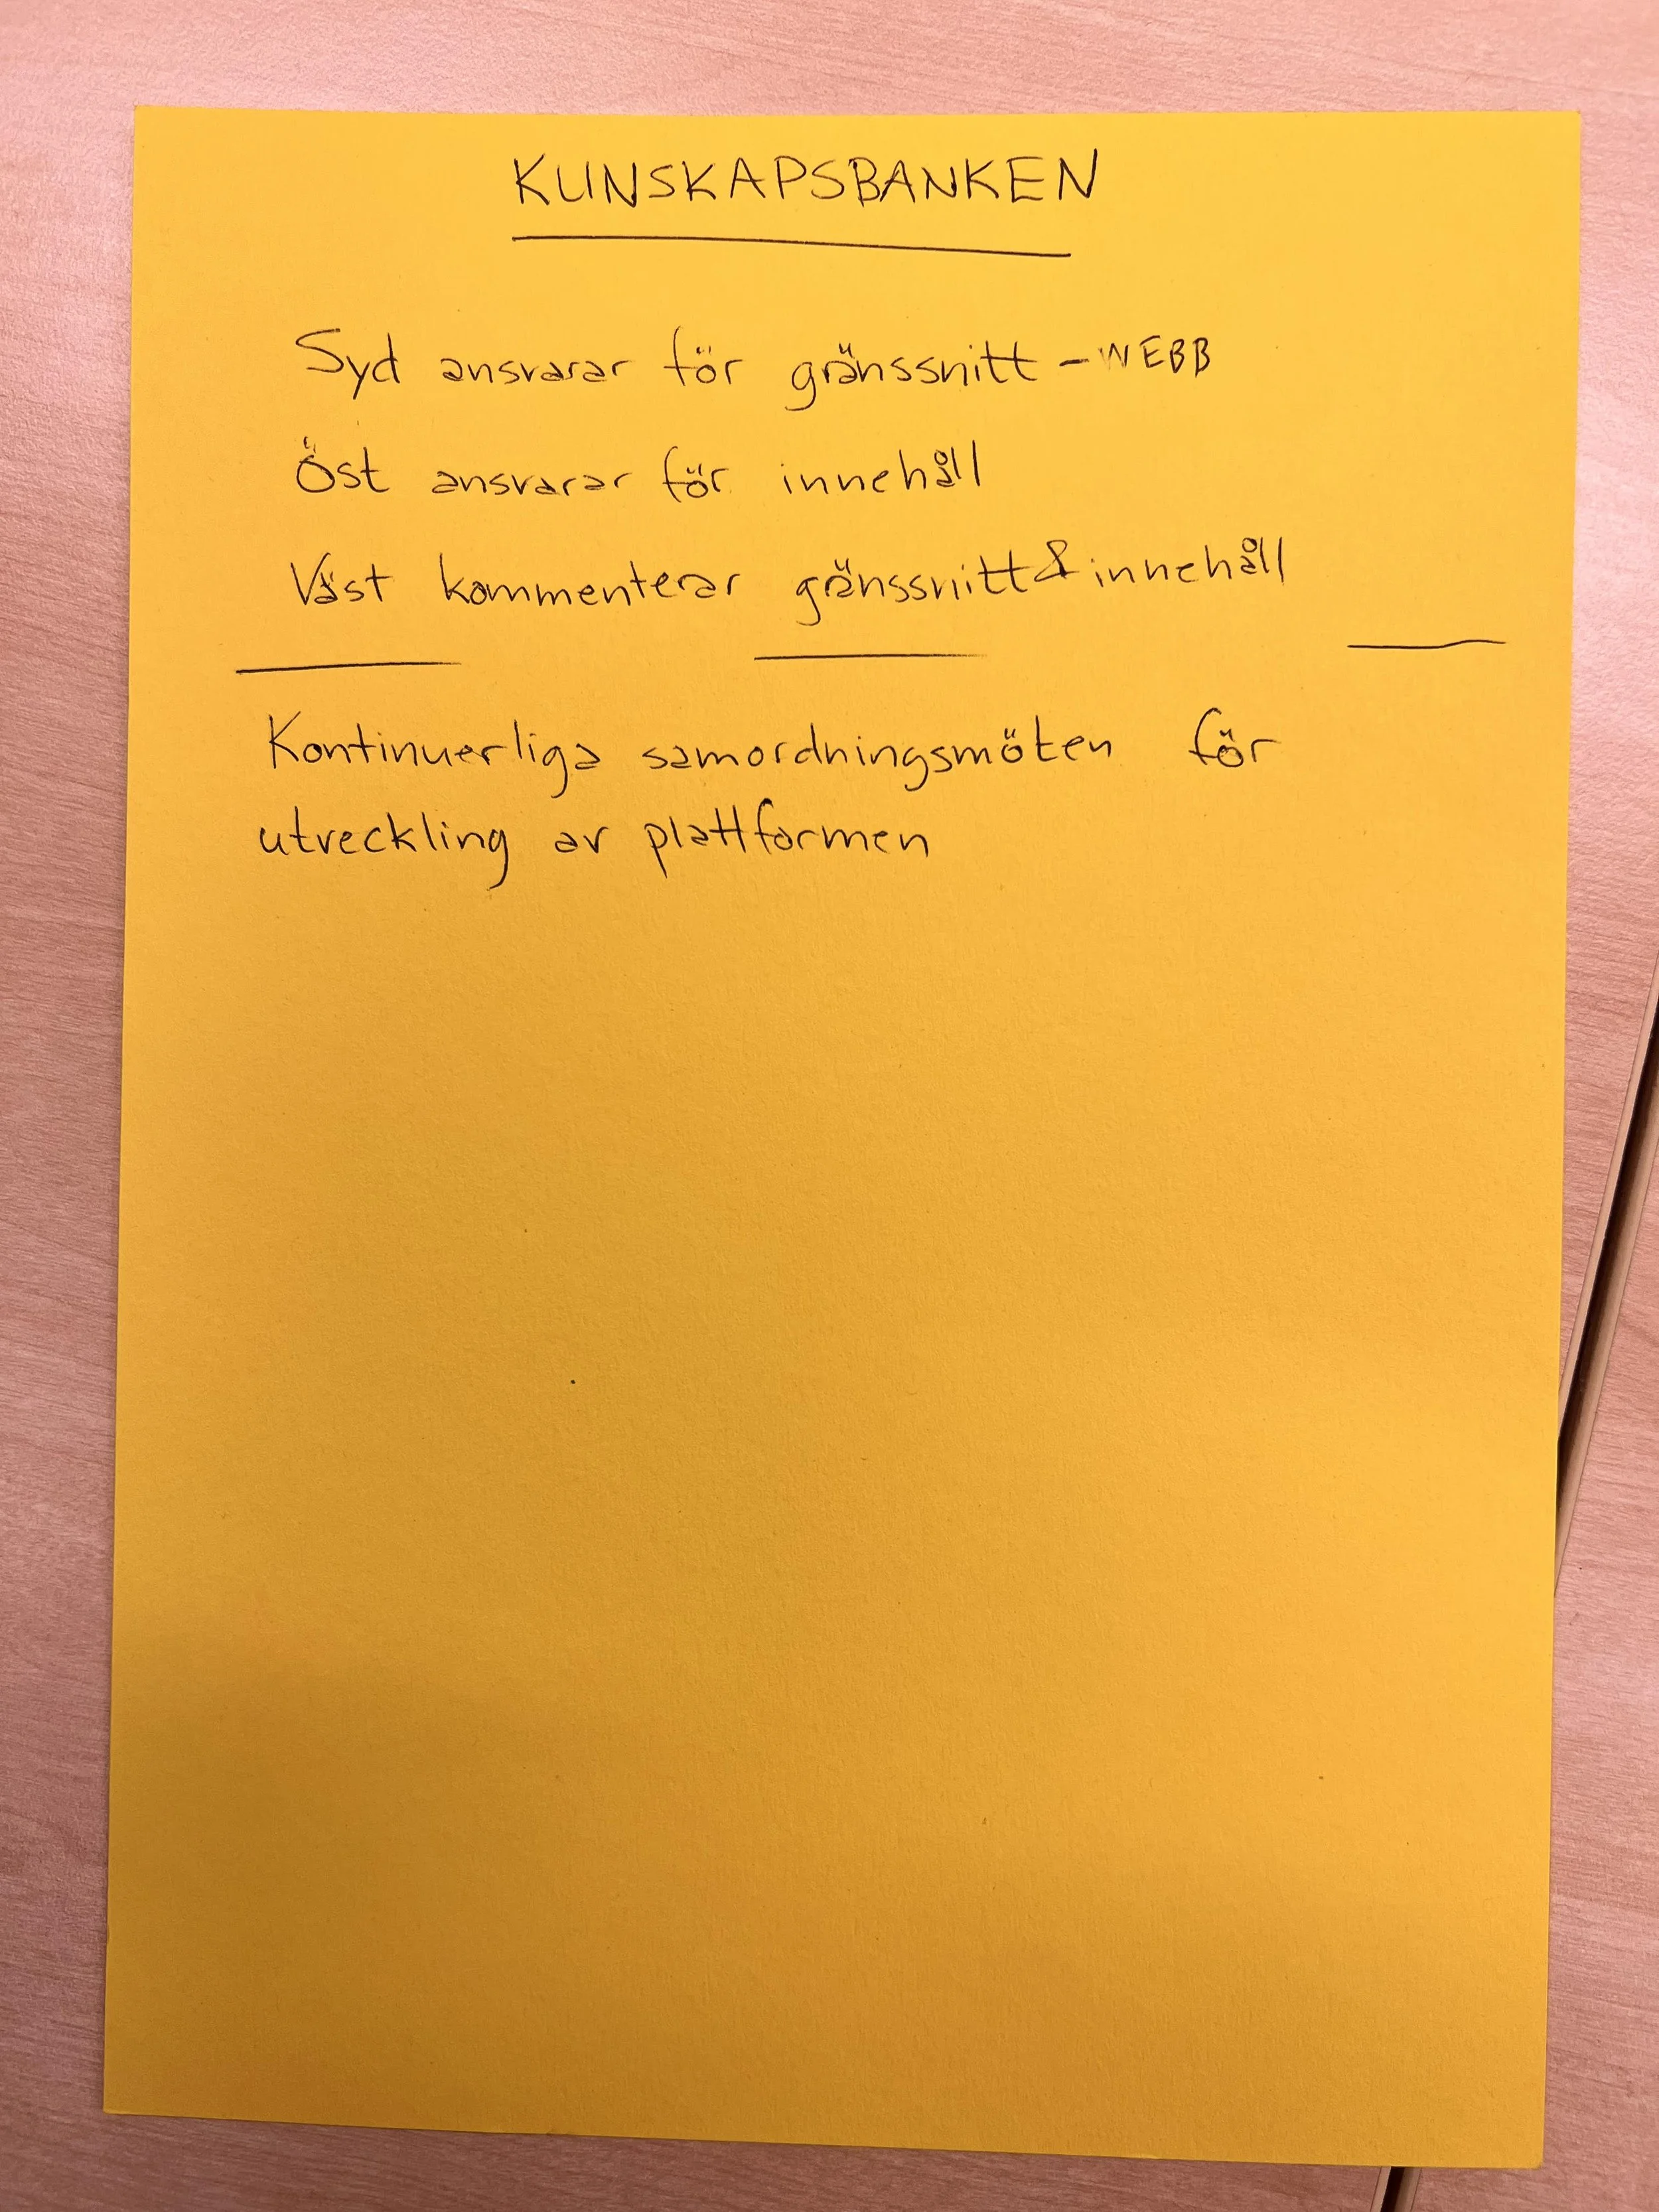 KUNSKAPSBANKEN
Syd ansvarar för gränssnitt - WEBB
Öst ansvarar för innehåll
Väst kommenterar gränssnitt & innehåll
Kontinuerliga samordningsmöten för
utveckling av plattformen